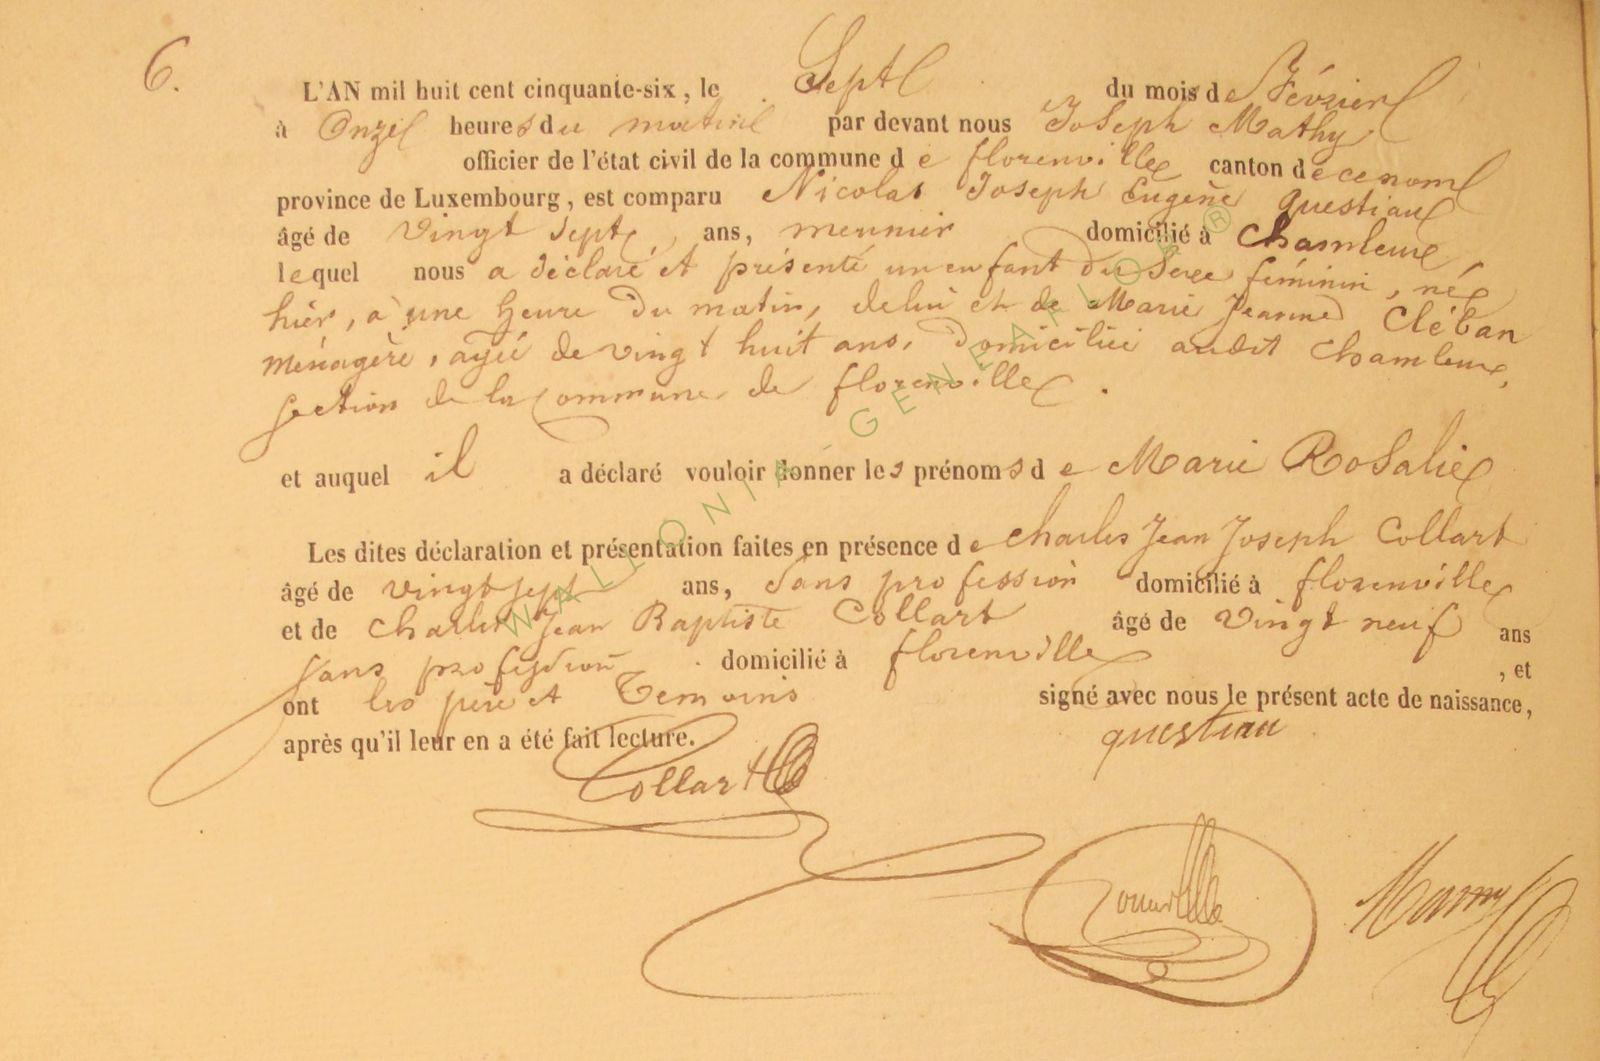 6.
L'AN mil huit cent cinquante-six, le Sept du mois de Février
à Onze heures du matin par devant nous Joseph Mathy
officier de l'état civil de la commune de florenville canton de ce nom
province de Luxembourg, est comparu Nicolas Joseph Eugène Questiau
âgé de vingt sept ans, meunier domicilié à Chamleux,
lequel nous a déclaré et présenté un enfant du Sexe féminin, né
hier, à une heure du matin, de lui et de Marie Jeanne Cléban
Ménagère, agée de vingt huit ans, Domiciliée audit Chamleux,
section de la Commune de florenville.
et auquel il a déclaré vouloir donner les prénoms de Marie Rosalie
Les dites déclaration et présentation faites en présence de Charles Jean Joseph Collart
âgé de vingt sept ans, Sans profession domicilié à florenville
et de Charles Jean Baptiste Collart âgé de vingt neuf ans
sans profession domicilié à florenville, et
ont les père et Temoins signé avec nous le présent acte de naissance,
après qu'il leur en a été fait lecture.
questiau
Collart
WALLONIA-GENEALOR ®